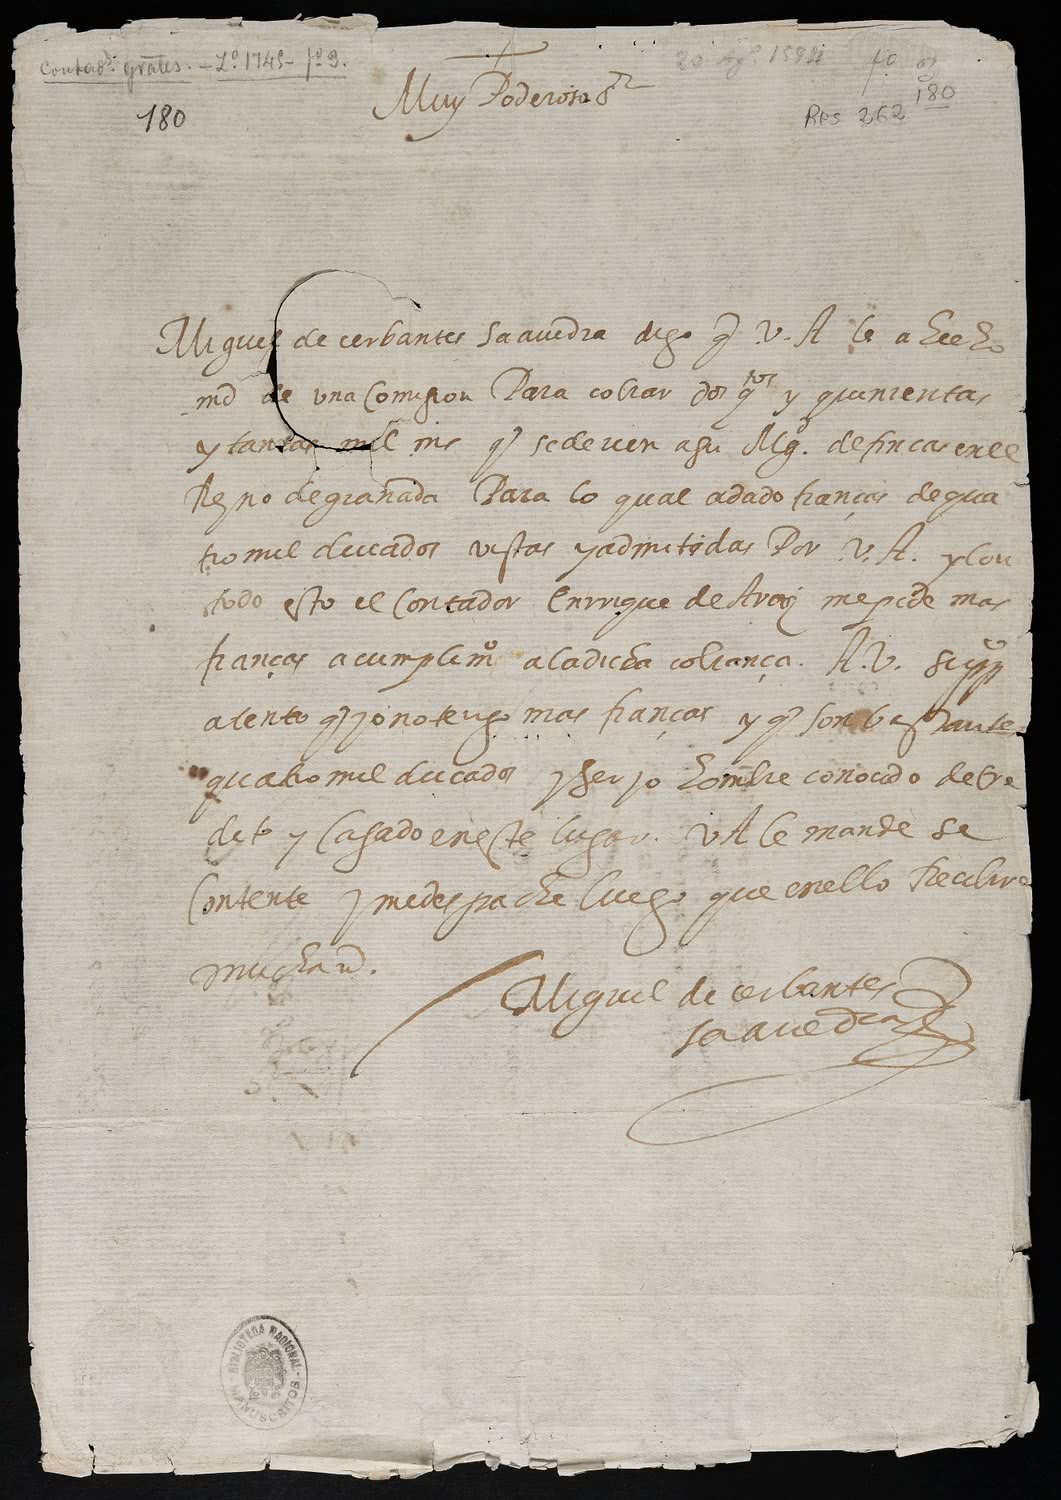 Contad.s grâles. - L.o 1745 - f.o 9.
20 Ag.o 1584
fo
180
180
Res 262
Muy Poderoso S.or
Miguel de cerbantes Saavedra digo q̃ V. A le a hecho
md de una Comision Para cobrar dos q.tos y quinientas
y tantas mil mrs q̃ sedeven a su Mg.d de fincas en el
Reyno de granada Para lo qual a dado fianças de qua
tro mil ducados vistas y admitidas Por V. A. y con
todo esto el Contador Enrrique de Araiz me pide mas
fianças a cumplim.o a la dicha cobrança. A. V. A. supp.co
atento q̃ yo no tengo mas fianças y q̃ son bastante
quatro mil ducados y ser yo hombre conocido de cre
dito y Casado en este lugar. V A le mande se
Contente y me despache luego que en ello Recibire
mucha md.
Miguel de cerbantes
saavedra
BIBLIOTECA NACIONAL
MANUSCRITOS